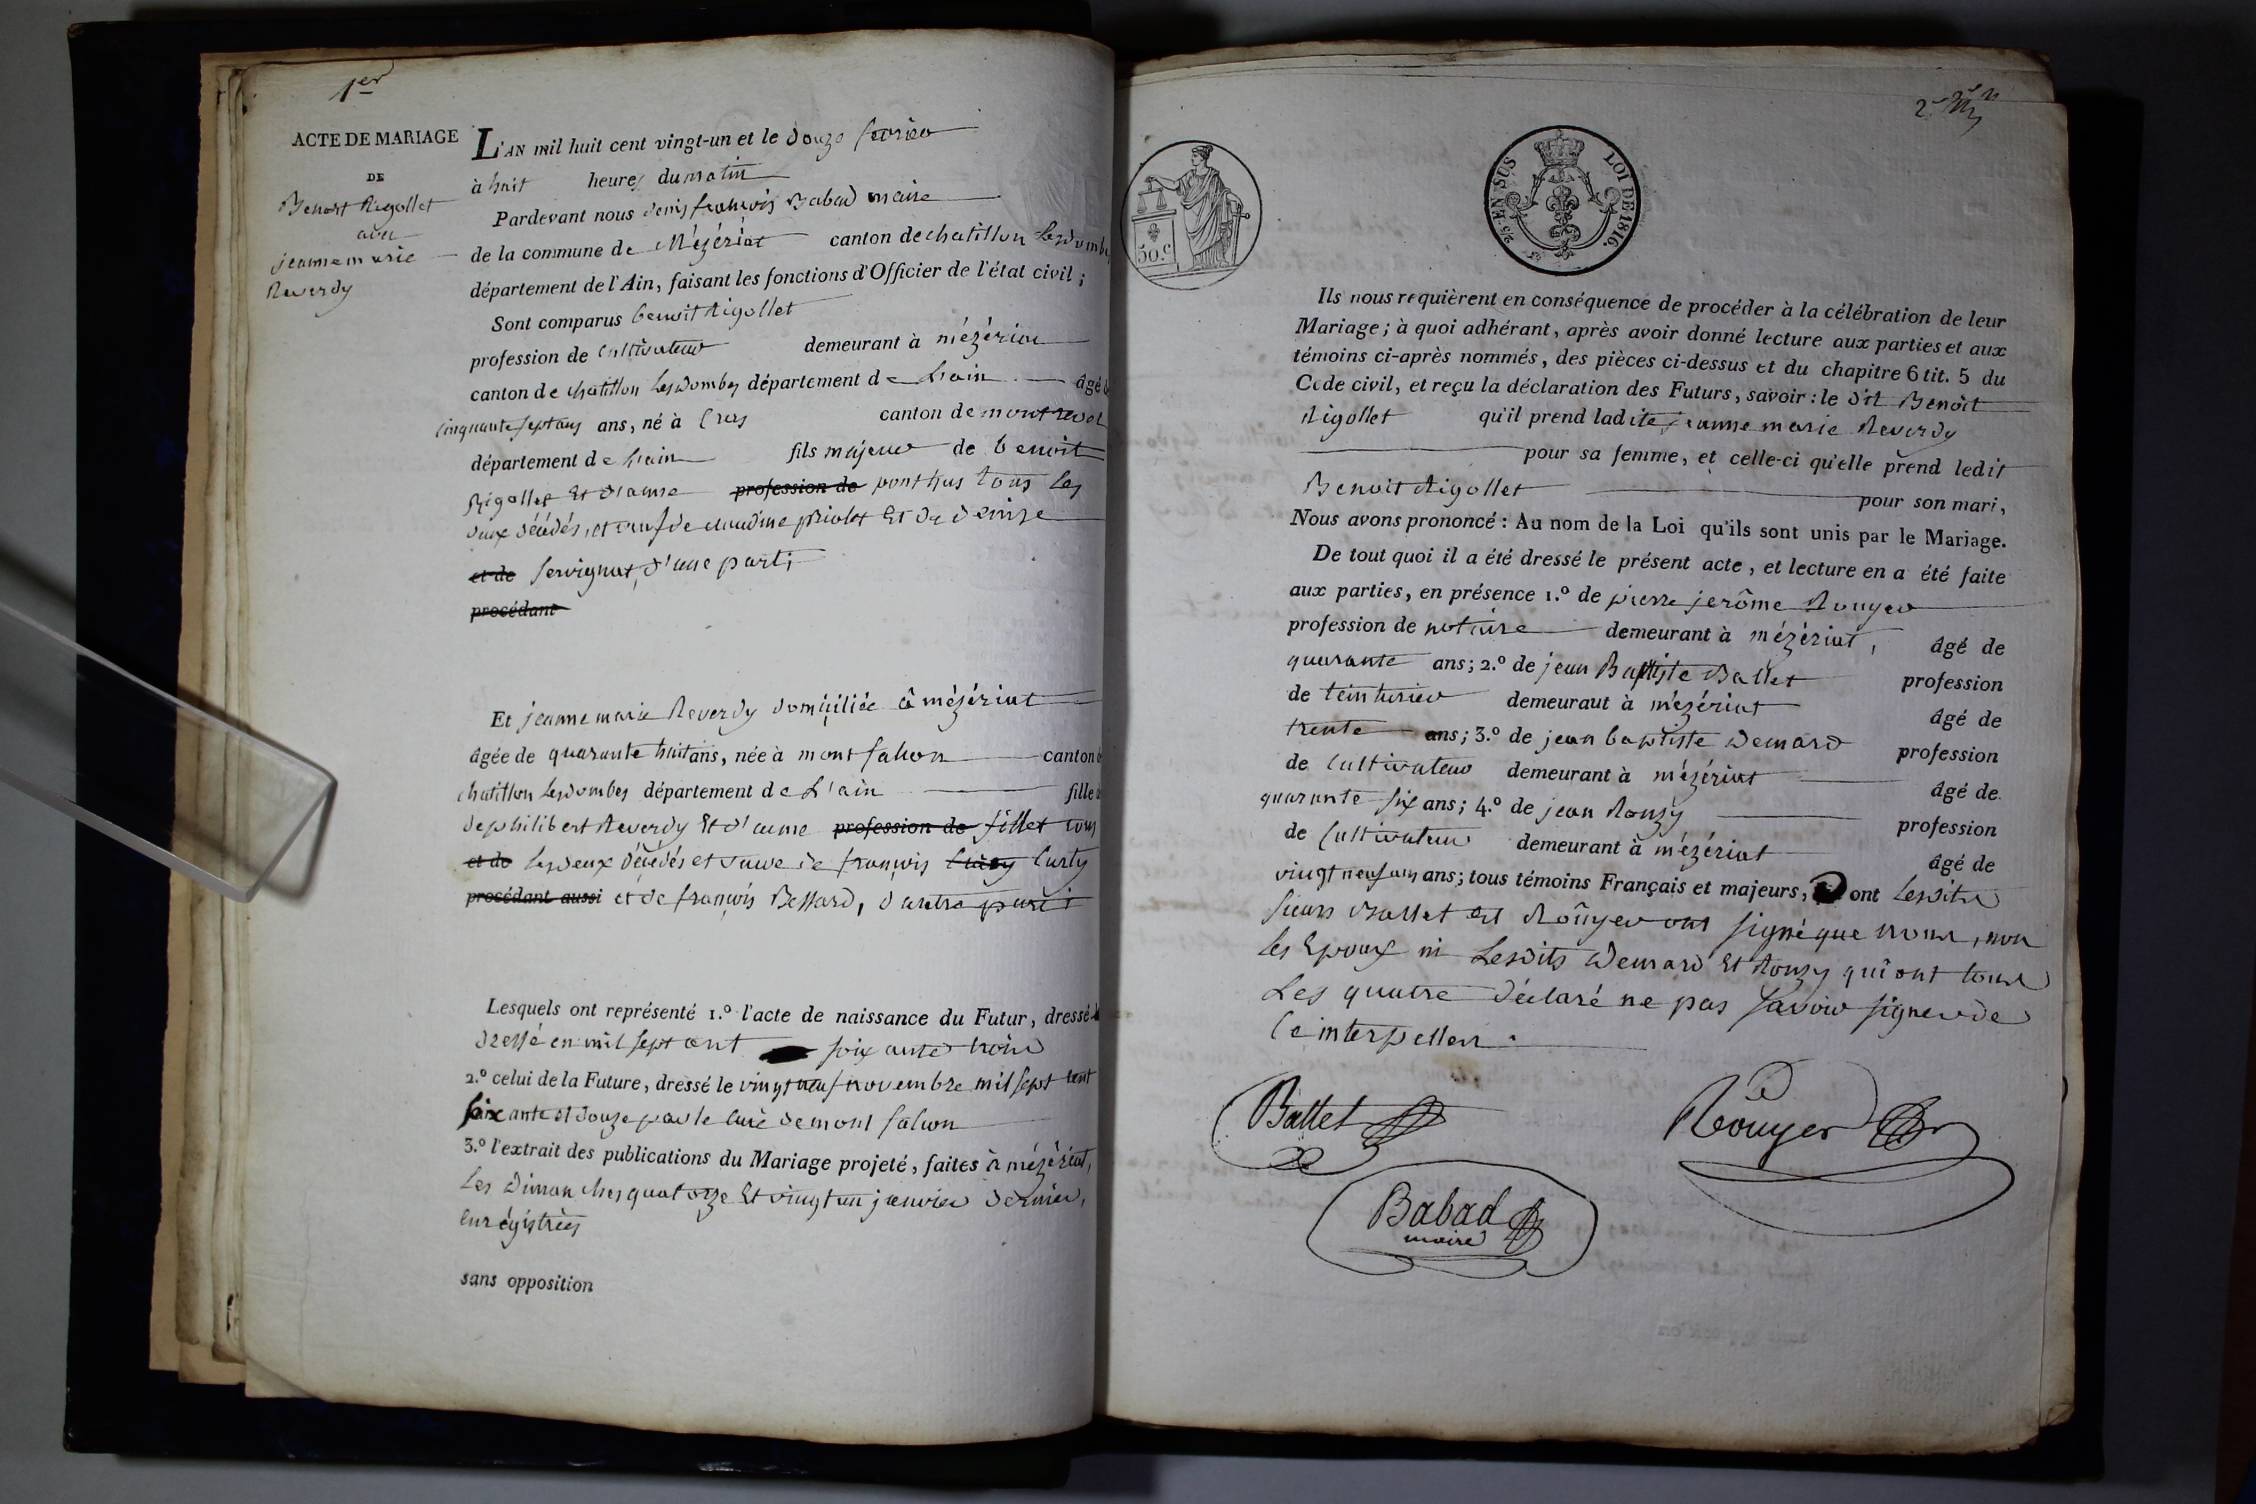 1er
ACTE DE MARIAGE
DE
Benoit Rigollet
avec
jeanne marie
Reverdy
L'AN mil huit cent vingt-un et le douze fevrier
à huit heures du matin
Pardevant nous denis françois Babad maire
de la commune de Mézériat canton de chatillon Lesdombes
département de l'Ain, faisant les fonctions d'Officier de l'état civil ;
Sont comparus benoit Rigollet
profession de Cultivateur demeurant à mézériat
canton de chatillon Lesdombes département de Lain âgé
cinquante sept ans ans, né à Cras canton de montrevel
département de Lain fils majeur de benoit
Rigollet Et d'anne profession de ponthus tous les
deux décédés, et veuf de claudine priolet Et de denise
et de servignat, d'une part ;
procédant
Et jeanne marie Reverdy domiciliée à mézériat
âgée de quarante huit ans, née à montfalcon canton
chatillon Lesdombes département de L'ain fille
de philibert Reverdy Et d'anne profession de fillet tous
et de les deux décédés et veuve de françois Curty
procédant aussi et de françois Bessard, d'autre part ;
Lesquels ont représenté 1.º l'acte de naissance du Futur, dressé
dressé en mil sept cent soixante trois
2.º celui de la Future, dressé le vingt neuf novembre mil sept cent
soixante et douze par le curé de montfalcon
3.º l'extrait des publications du Mariage projeté, faites à mézériat,
Les dimanches quatorze Et vingt un janvier dernier,
enrégistrées
sans opposition
2e
50.c
2/5 EN SUS LOI DE 1816.
Ils nous requièrent en conséquence de procéder à la célébration de leur
Mariage ; à quoi adhérant, après avoir donné lecture aux parties et aux
témoins ci-après nommés, des pièces ci-dessus et du chapitre 6 tit. 5 du
Code civil, et reçu la déclaration des Futurs, savoir : le dit Benoit
Rigollet qu'il prend ladite jeanne marie Reverdy
pour sa femme, et celle-ci qu'elle prend ledit
Benoit Rigollet pour son mari,
Nous avons prononcé : Au nom de la Loi qu'ils sont unis par le Mariage.
De tout quoi il a été dressé le présent acte, et lecture en a été faite
aux parties, en présence 1.º de pierre jerôme Rouyer
profession de notaire demeurant à mézériat, âgé de
quarante ans ; 2.º de jean Baptiste Ballet profession
de teinturier demeuraut à mézériat âgé de
trente ans ; 3.º de jean baptiste Demard profession
de Cultivateur demeurant à mézériat âgé de
quarante six ans ; 4.º de jean Rouzy profession
de Cultivateur demeurant à mézériat âgé de
vingt neuf ans ans ; tous témoins Français et majeurs, dont Lesdits
sieurs Ballet Et Roüyer ont signé que nous, non
les Epoux ni Lesdits Demard Et Rouzy qui ont tous
Les quatre déclaré ne pas savoir signer de
ce interpellés.
Ballet
Rouyer
Babad
maire